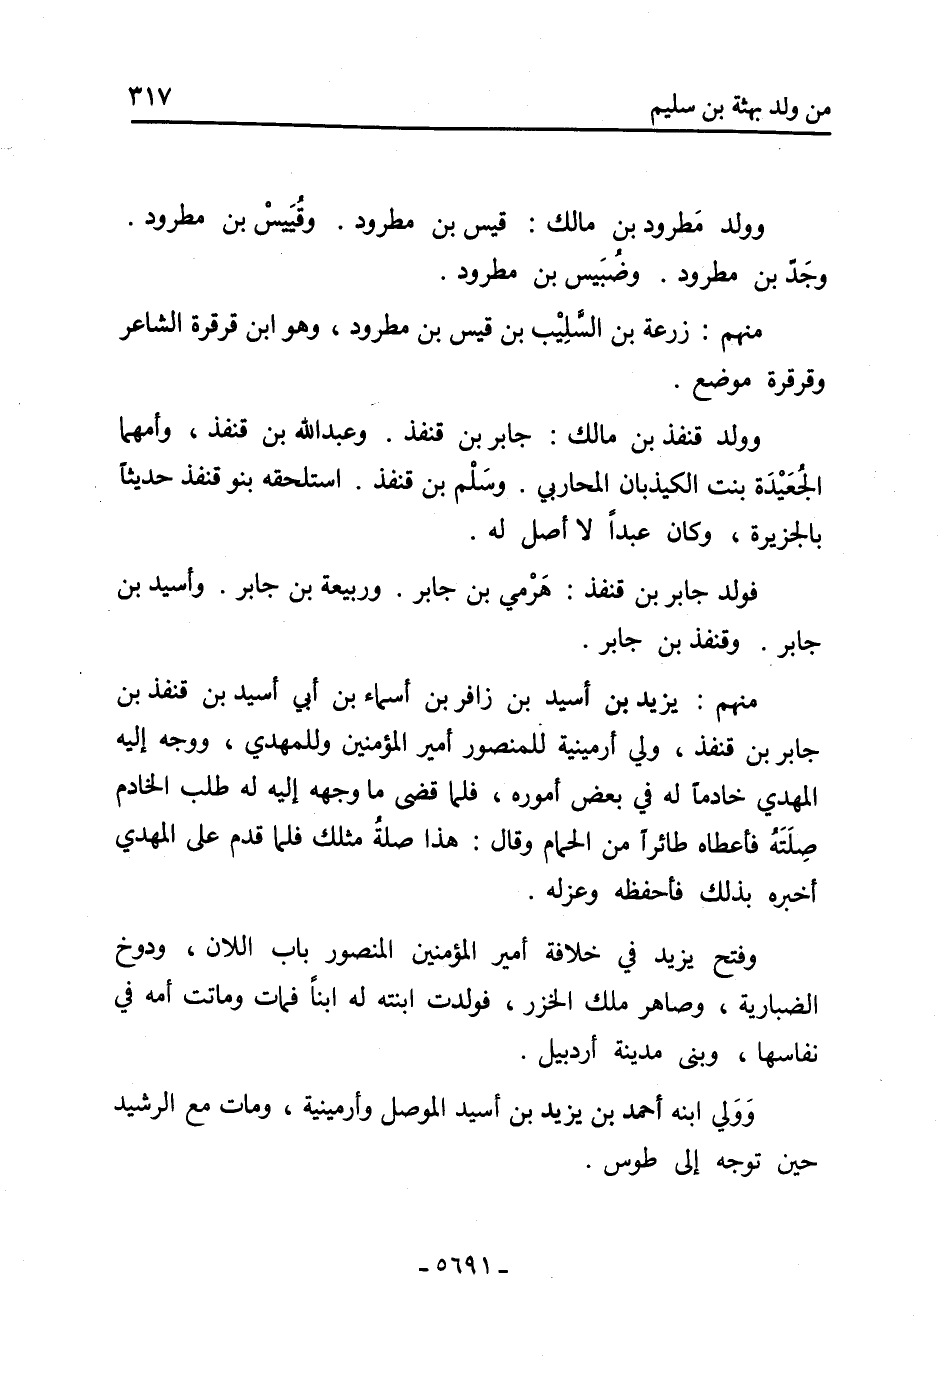 من ولد بهثة بن سليم ٣١٧
وولد مَطرود بن مالك : قيس بن مطرود . وقُيَيسْ بن مطرود .
وجَدّ بن مطرود . وضُبَيس بن مطرود .
منهم : زرعة بن السَّلِيْب بن قيس بن مطرود ، وهو ابن قرقرة الشاعر
وقرقرة موضع .
وولد قنفذ بن مالك : جابر بن قنفذ . وعبدالله بن قنفذ ، وأمهما
الجُعَيْدَة بنت الكيذبان المحاربي . وسَلْم بن قنفذ . استلحقه بنو قنفذ حديثاً
بالجزيرة ، وكان عبداً لا أصل له .
فولد جابر بن قنفذ : هَرْمي بن جابر . وربيعة بن جابر . وأسيد بن
جابر . وقنفذ بن جابر .
منهم : يزيد بن أسيد بن زافر بن أسماء بن أبي أسيد بن قنفذ بن
جابر بن قنفذ ، ولي أرمينية للمنصور أمير المؤمنين وللمهدي ، ووجه إليه
المهدي خادماً له في بعض أموره ، فلما قضى ما وجهه إليه له طلب الخادم
صِلَتَهُ فأعطاه طائراً من الحمام وقال : هذا صلةُ مثلك فلما قدم على المهدي
أخبره بذلك فأحفظه وعزله .
وفتح يزيد في خلافة أمير المؤمنين المنصور باب اللان ، ودوخ
الضبارية ، وصاهر ملك الخزر ، فولدت ابنته له ابناً فمات وماتت أمه في
نفاسها ، وبنى مدينة أردبيل .
وَوَلي ابنه أحمد بن يزيد بن أسيد الموصل وأرمينية ، ومات مع الرشيد
حين توجه إلى طوس .
- ٥٦٩١ -